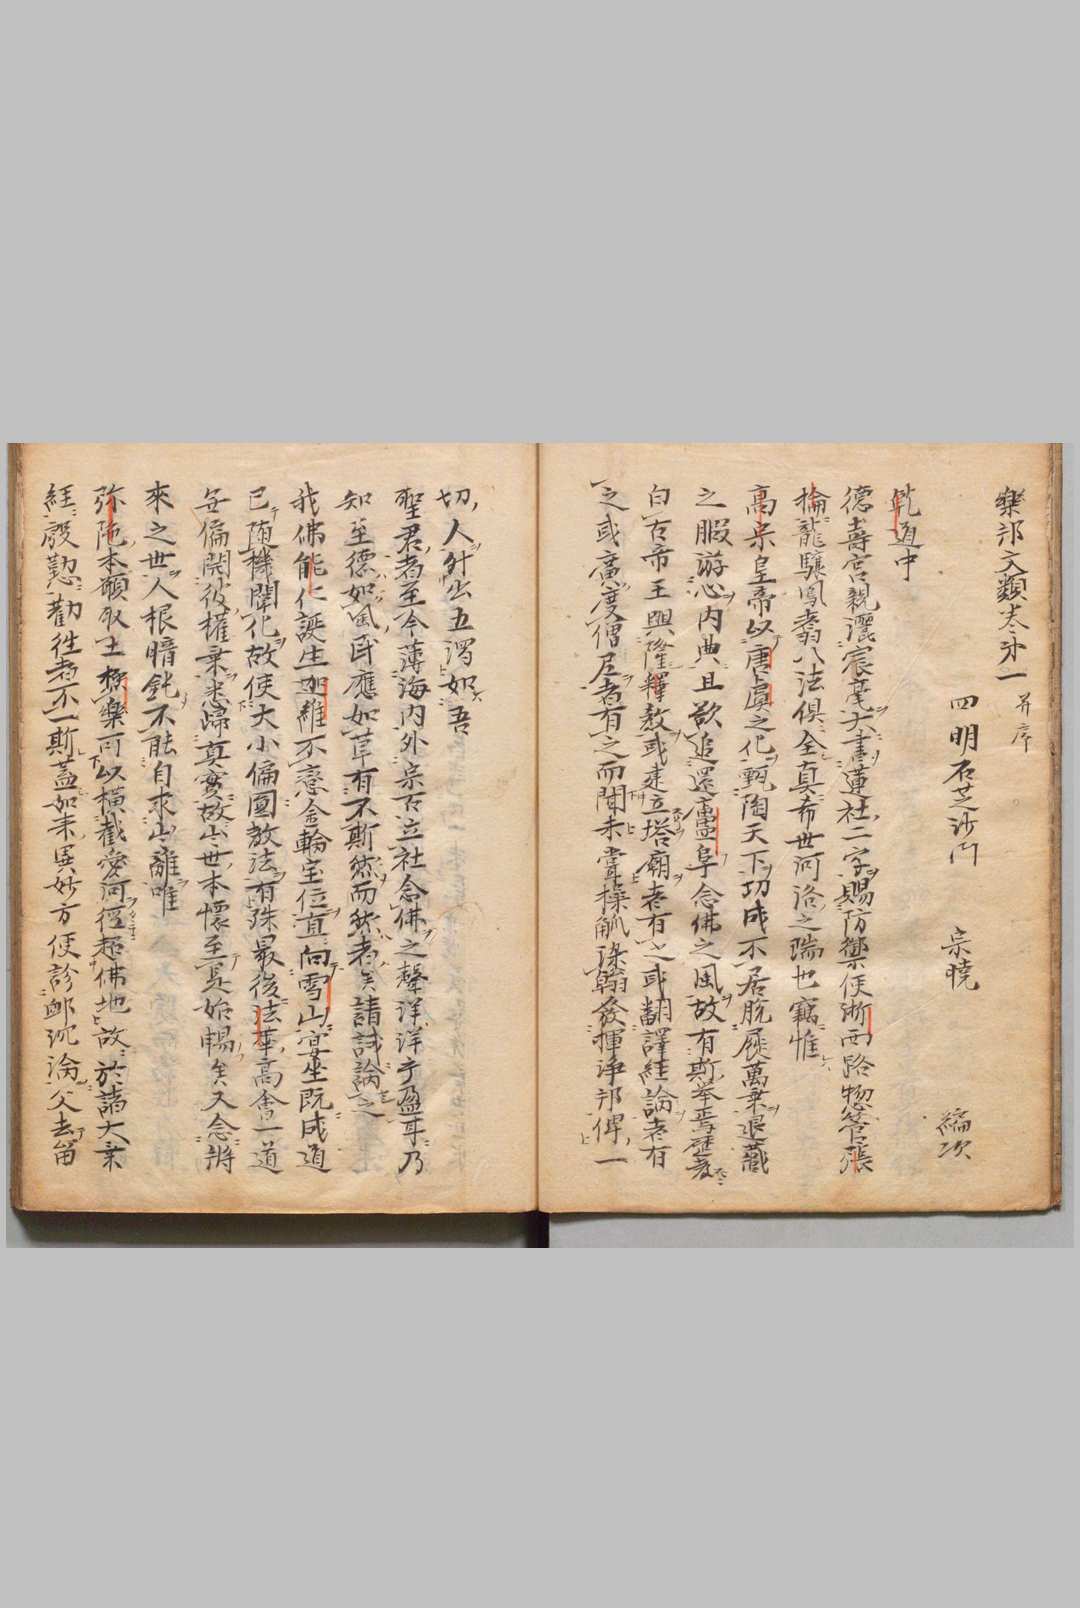 樂邦文類卷第一 并序
四明石芝沙門 宗曉 編次
乾道中
德壽宮親灑宸毫大書蓮社二字賜防禦使浙西路惣管張
掄龍驤鳳翥八法俱全真希世河洛之瑞也竊惟
高宗皇帝以唐虞之化甄陶天下功成不居脫屣萬乘退藏
之暇游心內典且欲追還廬阜念佛之風故有斯舉焉歷考
自古帝王興隆釋教或建立塔廟者有之或翻譯經論者有
之或廣度僧尼者有之而聞未嘗操觚染翰發揮淨邦俾一
切人升出五濁如吾
聖君者至今薄海內外宗古立社念佛之聲洋洋乎盈耳乃
知至德如風民應如草有不期然而然者矣請試論之
我佛能仁誕生迦維不戀金輪宝位直向雪山宴坐既成道
已随機闡化故使大小偏圓教法有殊最後法華高會一道
無偏開彼權乘悉歸真實故出世本懷至是始暢矣又念將
來之世人根暗鈍不能自求出離唯
弥陀本願取土極樂可以橫截愛河徑超佛地故於諸大乘
經慇懃勸往者不一斯蓋如來異妙方便診卹沉淪父去留